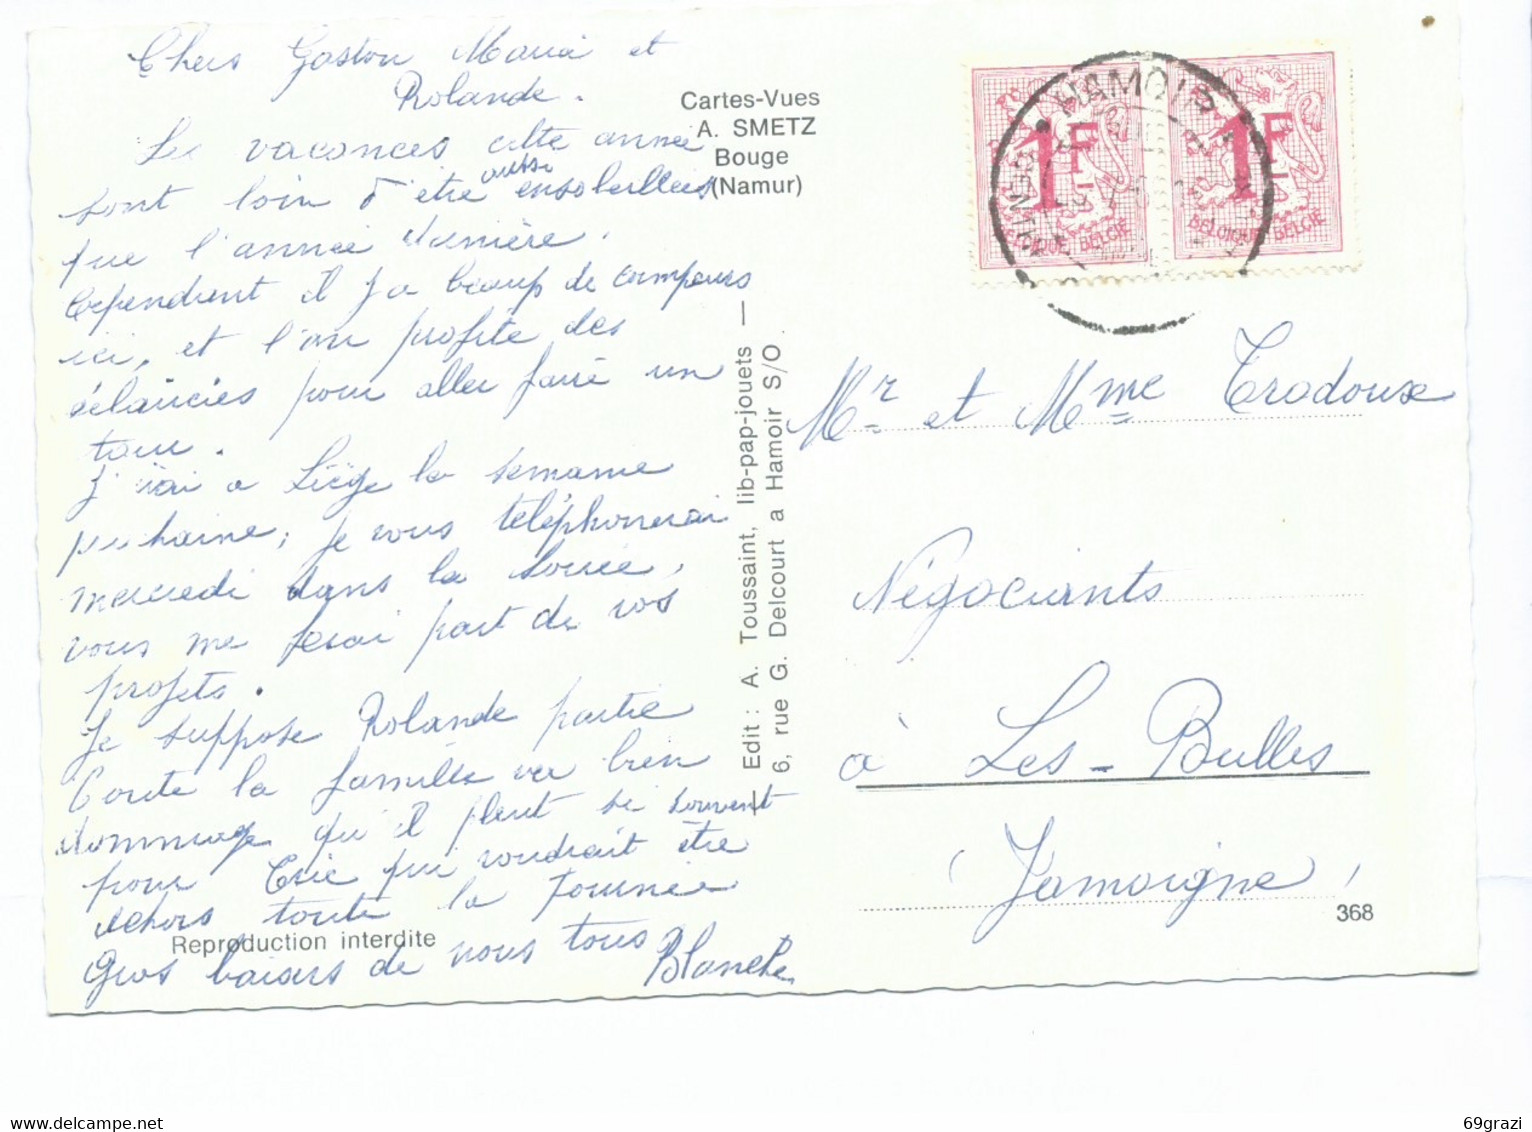 Chers Gaston Maria et
Rolande.
Les vacances cette année
sont loin d'être aussi ensoleillées
que l'année dernière.
Cependant il y a beaucoup de campeurs
ici, et l'on profite des
éclaircies pour aller faire un
tour.
J'irai a Liège la semaine
prochaine, je vous téléphonerai
mercredi dans la soirée,
vous me ferai part de vos
projets.
Je suppose Rolande partie
Toute la famille va bien
dommage qu'il pleut si souvent
pour Eric qui voudrait être
dehors toute la journée
Gros baisers de nous tous
Blanche
Reproduction interdite
Cartes-Vues
A. SMETZ
Bouge
(Namur)
— Edit : A. Toussaint, lib-pap-jouets —
6, rue G. Delcourt a Hamoir S/O
HAMOIR
1F
BELGIQUE BELGIË
1F
BELGIQUE BELGIË
Mr et Mme Trodoux
Négociants
à Les-Bulles
(Jamoigne)
368
69grazi